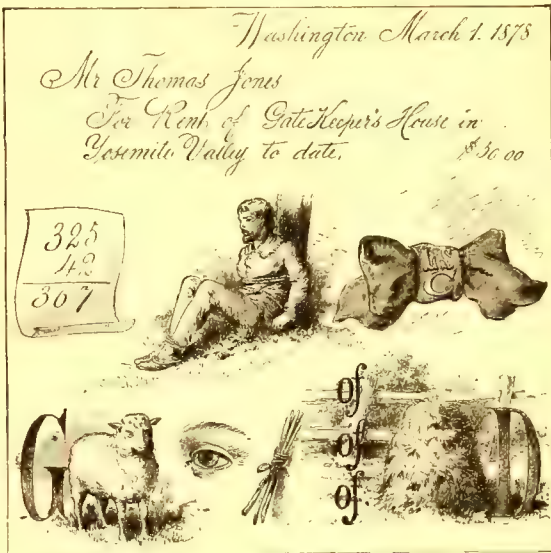 Washington March 1. 1878
Mr Thomas Jones
For Rent of Gate Keeper's House in
Yosemite Valley to date. $30 00
325
42
367
C
of
G of D
of